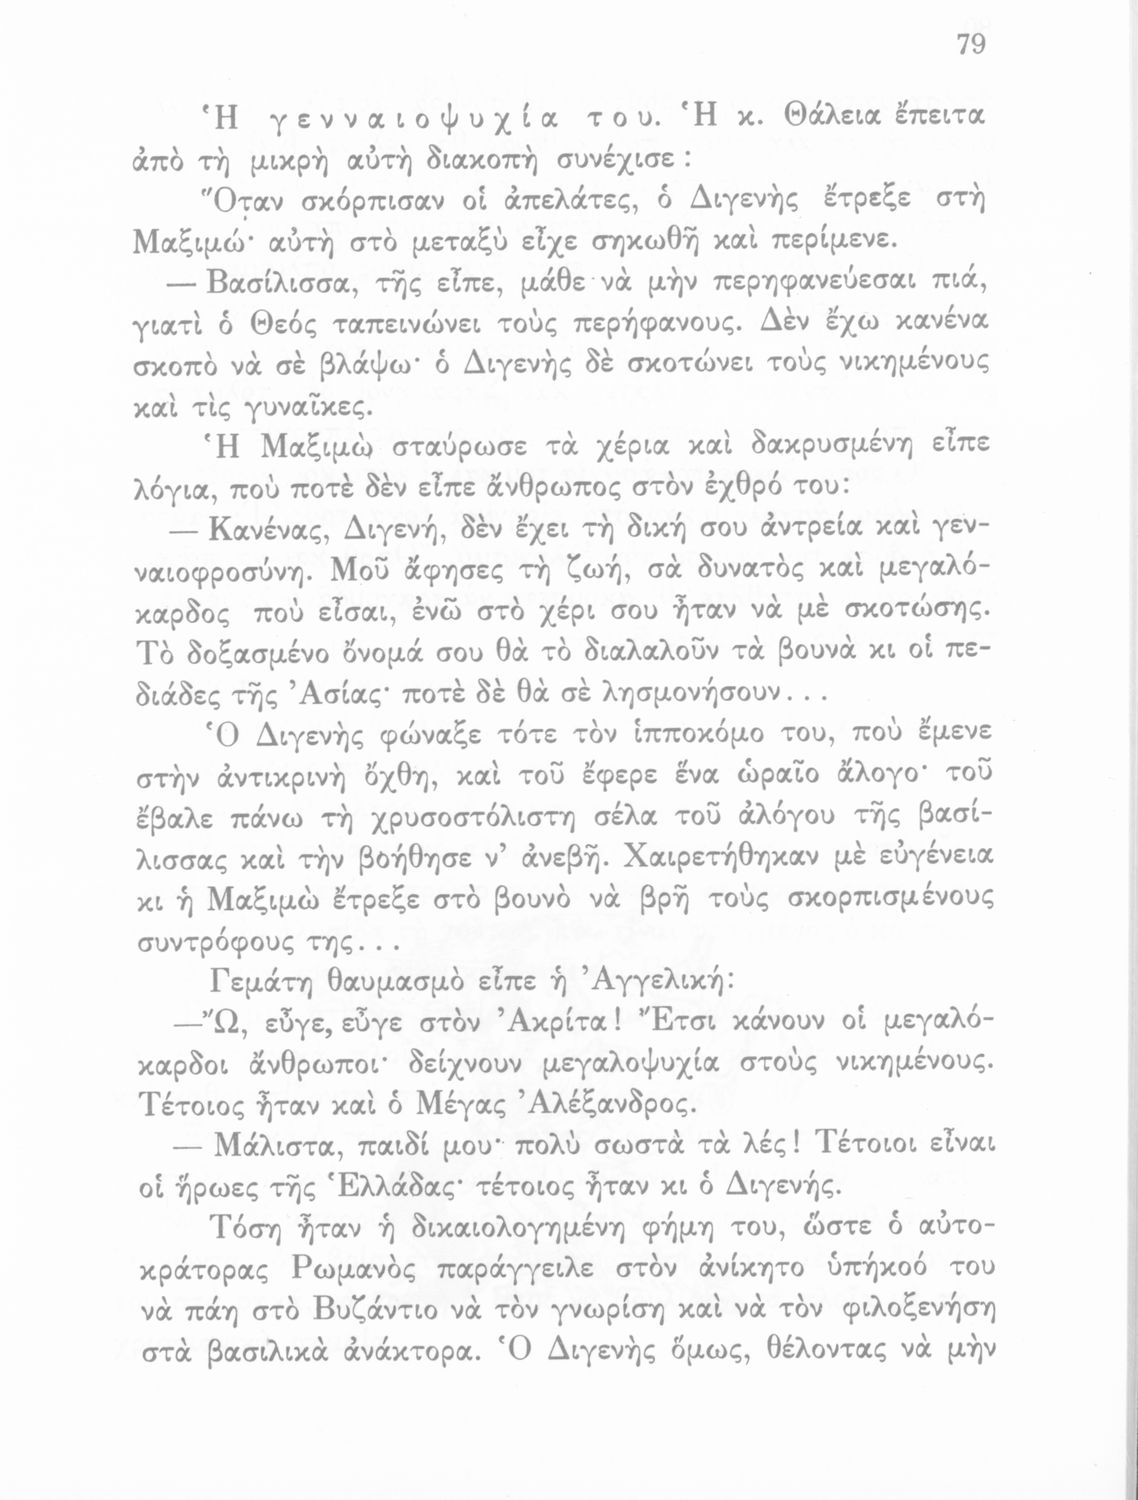 79
Ἡ γενναιοψυχία του. Ἡ κ. Θάλεια ἔπειτα
ἀπὸ τὴ μικρὴ αὐτὴ διακοπὴ συνέχισε :
Ὅταν σκόρπισαν οἱ ἀπελάτες, ὁ Διγενὴς ἔτρεξε στὴ
Μαξιμώ· αὐτὴ στὸ μεταξὺ εἶχε σηκωθῆ καὶ περίμενε.
— Βασίλισσα, τῆς εἶπε, μάθε νὰ μὴν περηφανεύεσαι πιά,
γιατὶ ὁ Θεός ταπεινώνει τοὺς περήφανους. Δὲν ἔχω κανένα
σκοπὸ νὰ σὲ βλάψω· ὁ Διγενὴς δὲ σκοτώνει τοὺς νικημένους
καὶ τὶς γυναῖκες.
Ἡ Μαξιμὼ σταύρωσε τὰ χέρια καὶ δακρυσμένη εἶπε
λόγια, ποὺ ποτὲ δὲν εἶπε ἄνθρωπος στὸν ἐχθρό του:
— Κανένας, Διγενή, δὲν ἔχει τὴ δική σου ἀντρεία καὶ γεν-
ναιοφροσύνη. Μοῦ ἄφησες τὴ ζωή, σὰ δυνατὸς καὶ μεγαλό-
καρδος ποὺ εἶσαι, ἐνῶ στὸ χέρι σου ἦταν νὰ μὲ σκοτώσης.
Τὸ δοξασμένο ὄνομά σου θὰ τὸ διαλαλοῦν τὰ βουνὰ κι οἱ πε-
διάδες τῆς Ἀσίας· ποτὲ δὲ θὰ σὲ λησμονήσουν...
Ὁ Διγενὴς φώναξε τότε τὸν ἱπποκόμο του, ποὺ ἔμενε
στὴν ἀντικρινὴ ὄχθη, καὶ τοῦ ἔφερε ἕνα ὡραῖο ἄλογο· τοῦ
ἔβαλε πάνω τὴ χρυσοστόλιστη σέλα τοῦ ἀλόγου τῆς βασί-
λισσας καὶ τὴν βοήθησε ν’ ἀνεβῆ. Χαιρετήθηκαν μὲ εὐγένεια
κι ἡ Μαξιμὼ ἔτρεξε στὸ βουνὸ νὰ βρῆ τοὺς σκορπισμένους
συντρόφους της...
Γεμάτη θαυμασμὸ εἶπε ἡ Ἀγγελική:
—Ὢ, εὖγε, εὖγε στὸν Ἀκρίτα! Ἔτσι κάνουν οἱ μεγαλό-
καρδοι ἄνθρωποι· δείχνουν μεγαλοψυχία στοὺς νικημένους.
Τέτοιος ἦταν καὶ ὁ Μέγας Ἀλέξανδρος.
— Μάλιστα, παιδί μου· πολὺ σωστὰ τὰ λές! Τέτοιοι εἶναι
οἱ ἥρωες τῆς Ἑλλάδας· τέτοιος ἦταν κι ὁ Διγενής.
Τόση ἦταν ἡ δικαιολογημένη φήμη του, ὥστε ὁ αὐτο-
κράτορας Ρωμανὸς παράγγειλε στὸν ἀνίκητο ὑπήκοό του
νὰ πάη στὸ Βυζάντιο νὰ τὸν γνωρίση καὶ νὰ τὸν φιλοξενήση
στὰ βασιλικὰ ἀνάκτορα. Ὁ Διγενὴς ὅμως, θέλοντας νὰ μὴν